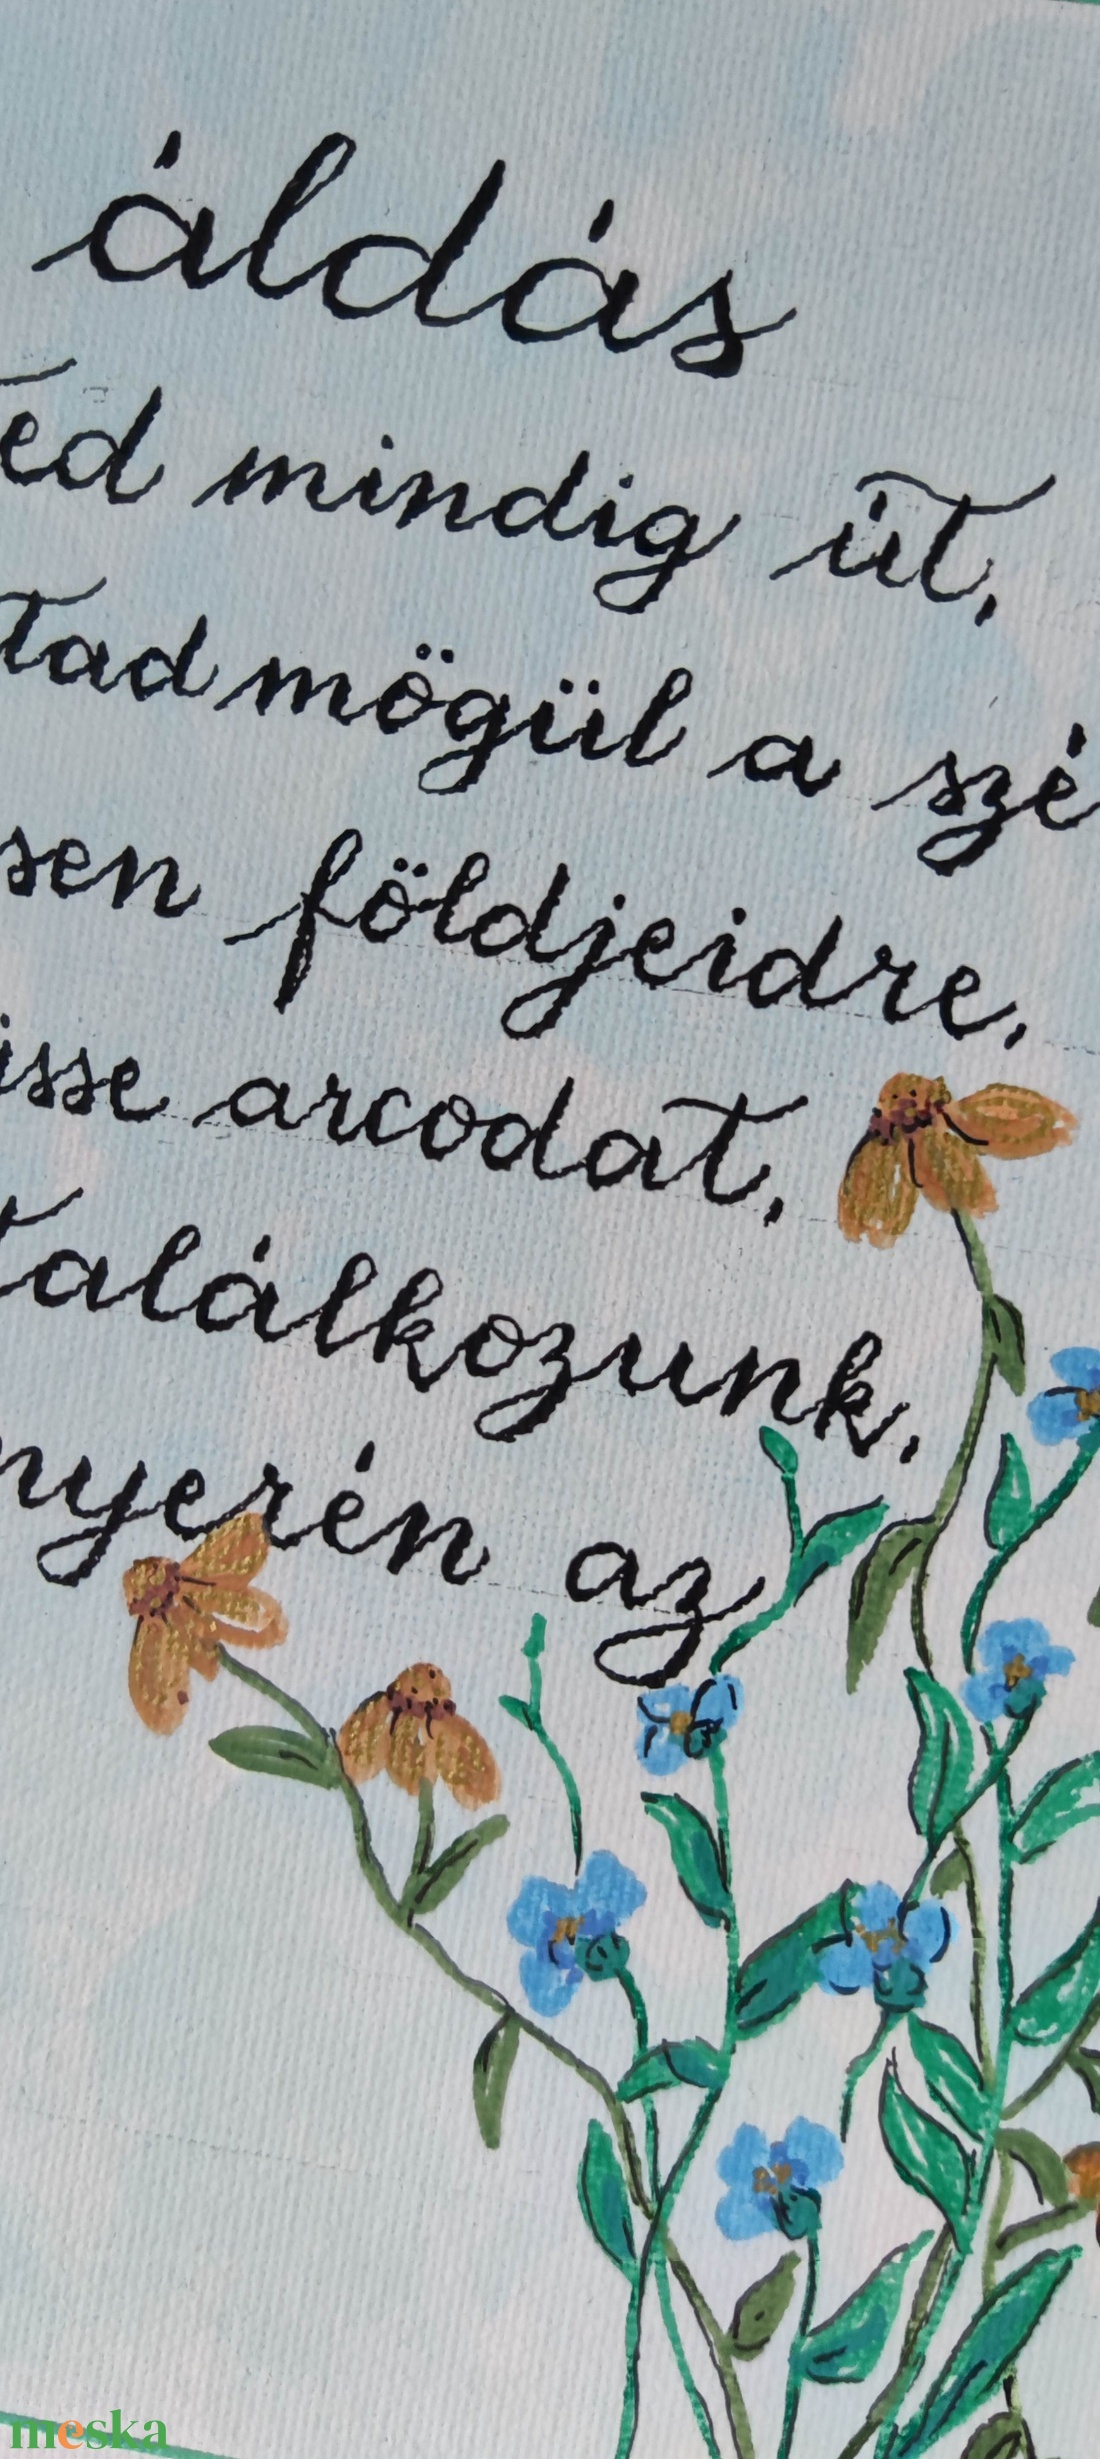 áldás
ed mindig út,
tad mögül a szé
sen földjeidre.
isse arcodat,
találkozunk,
nyerén az
meska